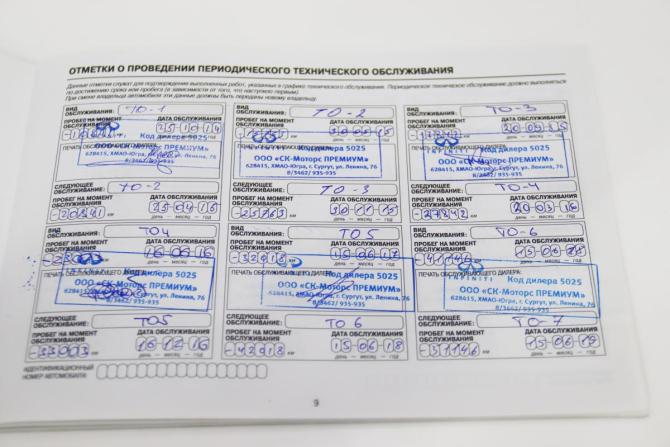 ОТМЕТКИ О ПРОВЕДЕНИИ ПЕРИОДИЧЕСКОГО ТЕХНИЧЕСКОГО ОБСЛУЖИВАНИЯ
Данные отметки служат для подтверждения выполненных работ, указанных в графике технического обслуживания. Периодическое техническое обслуживание должно выполняться
по достижению срока или пробега (в зависимости от того, что наступило первым).
При смене владельца автомобиля эти данные должны быть переданы новому владельцу.
ВИД ОБСЛУЖИВАНИЯ: ТО-1
ПРОБЕГ НА МОМЕНТ ОБСЛУЖИВАНИЯ
ДАТА ОБСЛУЖИВАНИЯ
25 10 14
Код дилера 5025
ООО «СК-Моторс ПРЕМИУМ»
628415, ХМАО-Югра, г. Сургут, ул. Ленина, 76
8/3462/ 935-935
СЛЕДУЮЩЕЕ ОБСЛУЖИВАНИЕ: ТО-2
ПРОБЕГ НА МОМЕНТ ОБСЛУЖИВАНИЯ
ДАТА ОБСЛУЖИВАНИЯ
-20841 км
25 04 15
день — месяц — год
ВИД ОБСЛУЖИВАНИЯ: ТО-2
ПРОБЕГ НА МОМЕНТ ОБСЛУЖИВАНИЯ
ДАТА ОБСЛУЖИВАНИЯ
Код дилера 5025
ООО «СК-Моторс ПРЕМИУМ»
628415, ХМАО-Югра, г. Сургут, ул. Ленина, 76
8/3462/ 935-935
СЛЕДУЮЩЕЕ ОБСЛУЖИВАНИЕ: ТО-3
ПРОБЕГ НА МОМЕНТ ОБСЛУЖИВАНИЯ
ДАТА ОБСЛУЖИВАНИЯ
км
30 11 15
день — месяц — год
ВИД ОБСЛУЖИВАНИЯ: ТО-3
ПРОБЕГ НА МОМЕНТ ОБСЛУЖИВАНИЯ
ДАТА ОБСЛУЖИВАНИЯ
INFINITI
Код дилера 5025
ООО «СК-Моторс ПРЕМИУМ»
628415, ХМАО-Югра, г. Сургут, ул. Ленина, 76
8/3462/ 935-935
СЛЕДУЮЩЕЕ ОБСЛУЖИВАНИЕ: ТО-4
ПРОБЕГ НА МОМЕНТ ОБСЛУЖИВАНИЯ
ДАТА ОБСЛУЖИВАНИЯ
-27242 км
20 03 16
день — месяц — год
ВИД ОБСЛУЖИВАНИЯ: ТО4
ПРОБЕГ НА МОМЕНТ ОБСЛУЖИВАНИЯ
ДАТА ОБСЛУЖИВАНИЯ
16 06 16
Код дилера 5025
ООО «СК-Моторс ПРЕМИУМ»
628415, ХМАО-Югра, г. Сургут, ул. Ленина, 76
8/3462/ 935-935
СЛЕДУЮЩЕЕ ОБСЛУЖИВАНИЕ: ТО5
ПРОБЕГ НА МОМЕНТ ОБСЛУЖИВАНИЯ
ДАТА ОБСЛУЖИВАНИЯ
-33003 км
16 12 16
день — месяц — год
ВИД ОБСЛУЖИВАНИЯ: ТО5
ПРОБЕГ НА МОМЕНТ ОБСЛУЖИВАНИЯ
ДАТА ОБСЛУЖИВАНИЯ
-32018
15 06 17
Код дилера 5025
ООО «СК-Моторс ПРЕМИУМ»
628415, ХМАО-Югра, г. Сургут, ул. Ленина, 76
8/3462/ 935-935
СЛЕДУЮЩЕЕ ОБСЛУЖИВАНИЕ: ТО 6
ПРОБЕГ НА МОМЕНТ ОБСЛУЖИВАНИЯ
ДАТА ОБСЛУЖИВАНИЯ
-42018 км
15 06 18
день — месяц — год
ВИД ОБСЛУЖИВАНИЯ: ТО-6
ПРОБЕГ НА МОМЕНТ ОБСЛУЖИВАНИЯ
ДАТА ОБСЛУЖИВАНИЯ
-41146
ПЕЧАТЬ ОБСЛУЖИВАЮЩЕГО ДИЛЕРА:
INFINITI
Код дилера 5025
ООО «СК-Моторс ПРЕМИУМ»
628415, ХМАО-Югра, г. Сургут, ул. Ленина, 76
8/3462/ 935-935
СЛЕДУЮЩЕЕ ОБСЛУЖИВАНИЕ: ТО-7
ПРОБЕГ НА МОМЕНТ ОБСЛУЖИВАНИЯ
ДАТА ОБСЛУЖИВАНИЯ
-51146 км
15 06 19
день — месяц — год
ИДЕНТИФИКАЦИОННЫЙ
НОМЕР АВТОМОБИЛЯ:
9